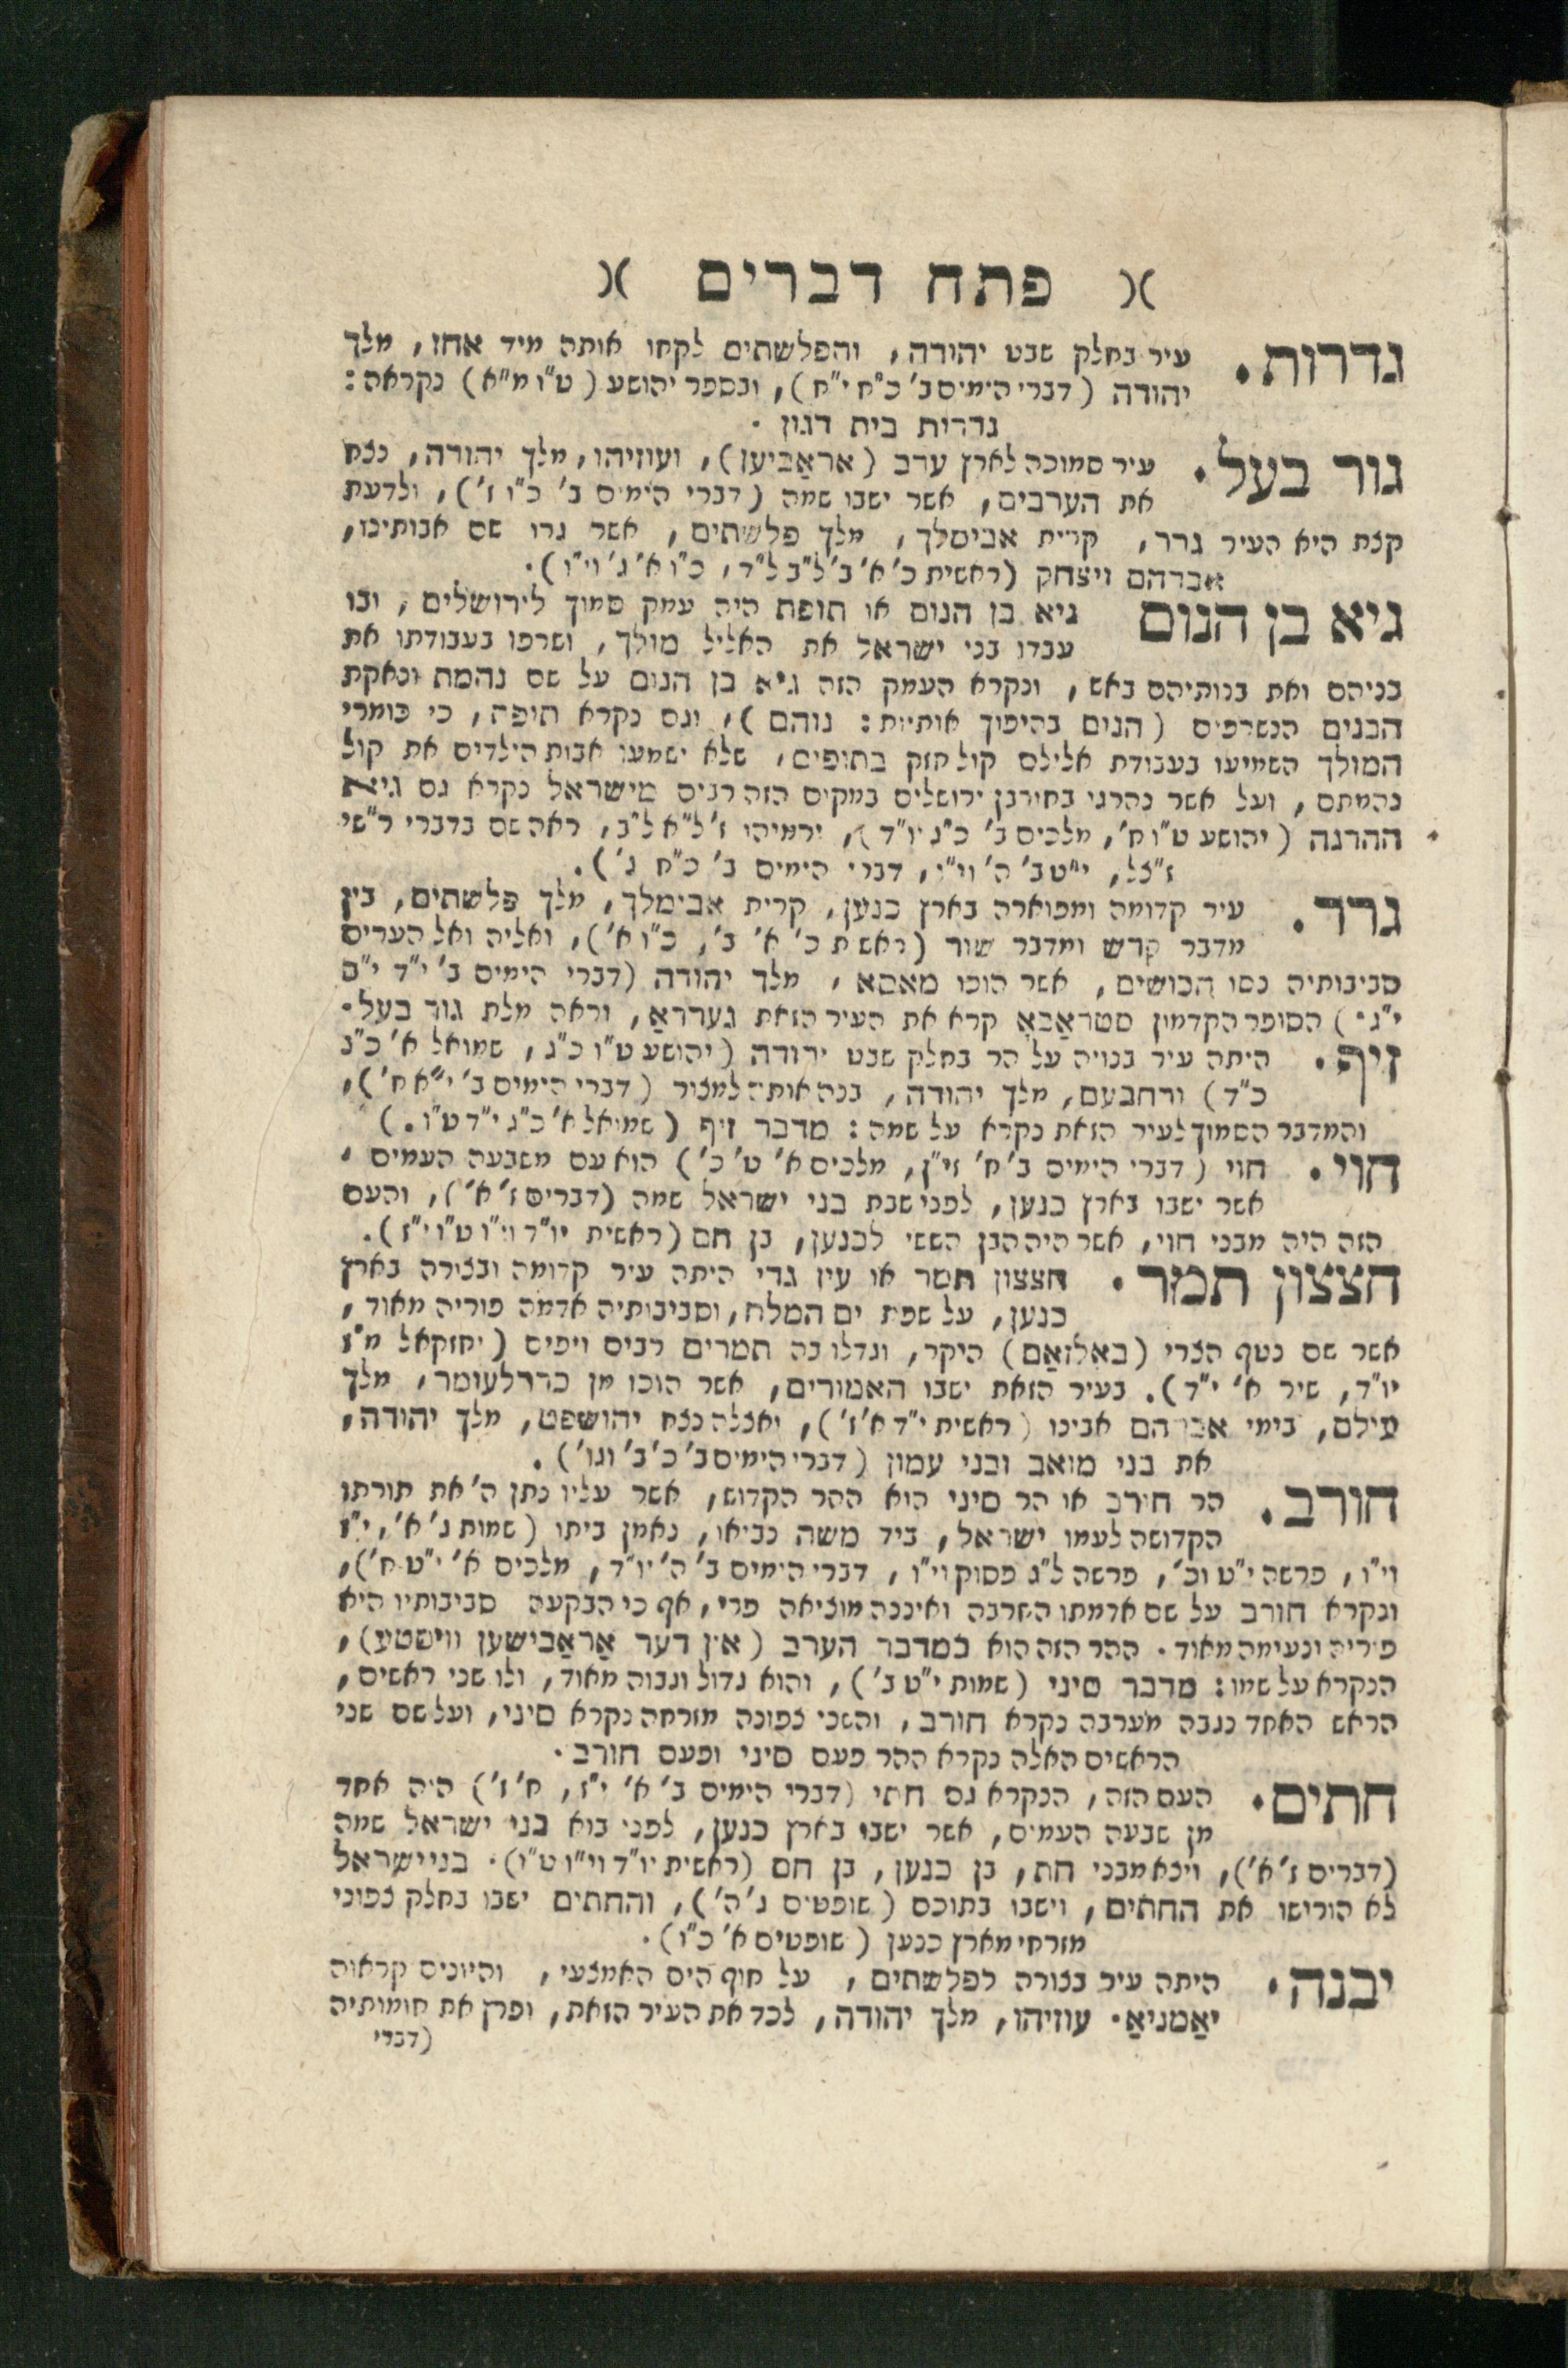 )( פתח דברים )(
גדרות. עיר בחלק שבט יהודה, והפלשתים לקחו אותה מיד אחז, מלך
יהודה (דברי הימים ב' כ"ח י"ח), ובספר יהושע (ט"ו מ"א) נקראה:
גדרות בית דגון.
גור בעל. עיר סמוכה לארץ ערב (אראַביען), ועוזיהו, מלך יהודה, נצח
את הערבים, אשר ישבו שמה (דברי הימים ב' כ"ו ז'), ולדעת
קצת היא העיר גרר, קרית אבימלך, מלך פלשתים, אשר גרו שם אבותינו,
אברהם ויצחק (ראשית כ' א' ב' ל"ב ל"ד, כ"ו א' ג' וי"ו).
גיא בן הנום גיא בן הנום או תופת היה עמק סמוך לירושלים, ובו
עבדו בני ישראל את האליל מולך, ושרפו בעבודתו את
בניהם ואת בנותיהם באש, ונקרא העמק הזה גיא בן הנום על שם נהמת ונאקת
הבנים הנשרפים (הנום בהיפוך אותיות: נוהם), וגם נקרא תופת, כי כומרי
המולך השמיעו בעבודת אלילם קול חזק בתופים, שלא ישמעו אבות הילדים את קול
נהמתם, ועל אשר נהרגו בחורבן ירושלים במקום הזה רבים מישראל נקרא גם גיא
ההרגה (יהושע ט"ו ח', מלכים ב' כ"ג יו"ד), ירמיהו ז' ל"א ל"ב, ראה שם בדברי רש"י
ז"צל, י"ט ב' ה' וי"ו, דברי הימים ב' כ"ח ג').
גרר. עיר קדומה ומפוארה בארץ כנען, קרית אבימלך, מלך פלשתים, בין
מדבר קדש ומדבר שור (ראשית כ' א' ב', כ"ו א'), ואליה ואל הערים
סביבותיה נסו הכושים, אשר הוכו מאסא, מלך יהודה (דברי הימים ב' י"ד י"ב
י"ג.) הסופר הקדמון סטראַבאָ קרא את העיר הזאת גערראַ, וראה מלת גור בעל.
זיף. היתה עיר בנויה על הר בחלק שבט יהודה (יהושע ט"ו כ"ג, שמואל א' כ"ג
כ"ד) ורחבעם, מלך יהודה, בנה אותה למצור (דברי הימים ב' י"א ח'),
והמדבר הסמוך לעיר הזאת נקרא על שמה: מדבר זיף (שמואל א' כ"ג י"ד ט"ו.)
חוי. חוי (דברי הימים ב' ח' זי"ן, מלכים א' ט' כ') הוא עם משבעה העמים,
אשר ישבו בארץ כנען, לפני שבת בני ישראל שמה (דברים ז' א'), והעם
הזה היה מבני חוי, אשר היה הבן הששי לכנען, בן חם (ראשית יו"ד וי"ו ט"ו י"ז).
חצצון תמר. חצצון תמר או עין גדי היתה עיר קדומה ובצורה בארץ
כנען, על שפת ים המלח, וסביבותיה אדמה פוריה מאוד,
אשר שם נטף הצרי (באַלזאַם) היקר, וגדלו בה תמרים רבים ויפים (יחזקאל מ"ז
יו"ד, שיר א' י"ד). בעיר הזאת ישבו האמורים, אשר הוכו מן כדרלעומר, מלך
עילם, בימי אברהם אבינו (ראשית י"ד א' ז'), ואצלה נצח יהושפט, מלך יהודה,
את בני מואב ובני עמון (דברי הימים ב' כ' ב' וגו').
חורב. הר חורב או הר סיני הוא ההר הקדוש, אשר עליו נתן ה' את תורתו
הקדושה לעמו ישראל, ביד משה נביאו, נאמן ביתו (שמות ג' א', י"ז
וי"ו, פרשה י"ט וכ', פרשה ל"ג פסוק וי"ו, דברי הימים ב' ה' יו"ד, מלכים א' י"ט ח'),
ונקרא חורב על שם אדמתו החרבה ואיננה מוציאה פרי, אף כי הבקעה סביבותיו היא
פוריה ונעימה מאוד. ההר הזה הוא במדבר הערב (אין דער אַראַבישען וויסטע),
הנקרא על שמו: מדבר סיני (שמות י"ט ב'), והוא גדול וגבוה מאוד, ולו שני ראשים,
הראש האחד נגבה מערבה נקרא חורב, והשני צפונה מזרחה נקרא סיני, ועל שם שני
הראשים האלה נקרא ההר פעם סיני ופעם חורב.
חתים. העם הזה, הנקרא גם חתי (דברי הימים ב' א' י"ז, ח' ז') היה אחד
מן שבעה העמים, אשר ישבו בארץ כנען, לפני בוא בני ישראל שמה
(דברים ז' א'), ויצא מבני חת, בן כנען, בן חם (ראשית יו"ד וי"ו ט"ו). בני ישראל
לא הורישו את החתים, וישבו בתוכם (שופטים ג' ה'), והחתים ישבו בחלק צפוני
מזרחי מארץ כנען (שופטים א' כ"ו).
יבנה. היתה עיר בצורה לפלשתים, על חוף הים האמצעי, והיונים קראוה
יאַמניאַ. עוזיהו, מלך יהודה, לכד את העיר הזאת, ופרץ את חומותיה
(דברי